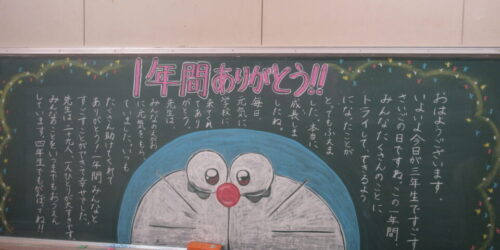 1年間ありがとう!!
おはようございます。
いよいよ今日が三年生ですごす
さいごの日ですね。この一年間、
みんなたくさんのことに
トライして、できるよう
になったことが
とってもふえま
した。本当に
成長しま
したね。
毎日
元気に
学校に
来てくれ
てありが
とう。
先生は、
みんなのえがお
に元気をもらっ
ていました。いつも
たくさん助けてくれて
ありがとう!一年間みんなと
すごすことができて幸せでした。
先生は、二十八人一人ひとりが大すきです。
みんなのことをいつまでもおうえん
しています。四年生でもがんばってね!!